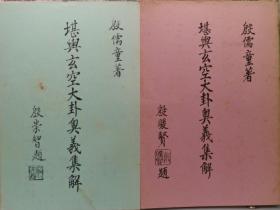 殷儒童著
堪輿玄空大卦奧義集解
殷崇智題
殷儒童著
堪輿玄空大卦奧義集解
殷駿賢題